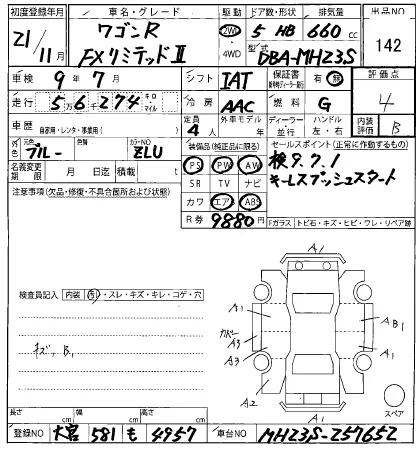 初度登録年月 車名・グレード 駆動 ドア数・形状 排気量 出品NO
21/11月 ワゴンR 2WD 5 HB 660cc 142
FXリミテッドⅡ ・4WD 型式 DBA-MH23S
車検 9年7月 シフト IAT 保証書 有・無 評価点
走行 56,274 キロ・マイル 冷房 AAC 燃料 G 4
車歴 自家用・レンタ・事業用( ) 定員 4人 外車モデル 年 ディーラー 並行 ハンドル 左・右 内装評価 B
外色 元色 ブルー 色替 カラーNO ZLU 装備品(純正品に限る) セールスポイント(正常に作動するもの)
名義変更期限 月 日迄 積載量 t PS PW AW 検9.7.1
注意事項(欠品・修復・不具合箇所および状態) SR TV ナビ キーレスプッシュスタート
カワ エアB ABS
R券 9880円 Fガラス トビ石・キズ・ヒビ・ワレ・リペア跡
A1
検査員記入 内装 ・スレ・キズ・キレ・コゲ・穴
A1 AB1
カバー A3
キズ、B1 A3 A1
A2
A1 スペア
長さ cm 幅 cm 高さ cm
登録NO 大宮 581 も 4957 車台NO MH23S-257652